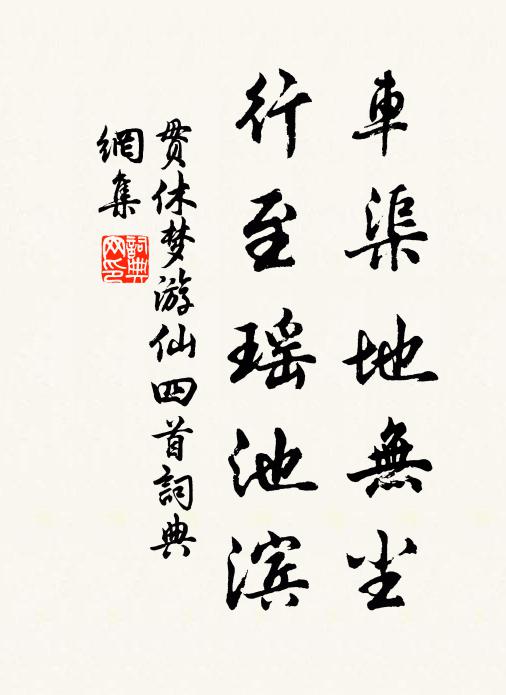 車渠地無尘
行至瑶池滨
贯休梦游仙四首詞典
網集
詞典网印